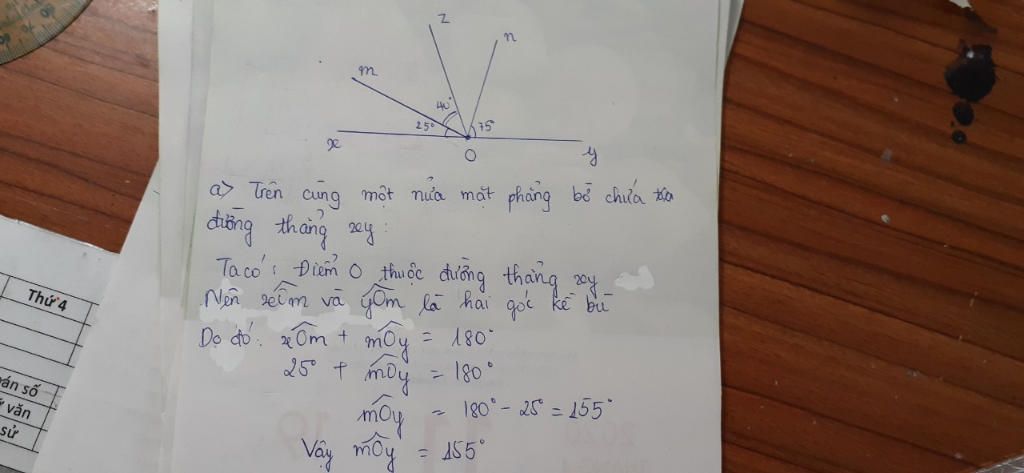 z
n
m
40°
25°
75°
x
O
y
a> Trên cùng một nửa mặt phẳng bờ chứa tia
đường thẳng xy:
Ta có: Điểm O thuộc đường thẳng xy
Nên xÔm và yÔm là hai góc kề bù
Do đó: xÔm + mÔy = 180°
25° + mÔy = 180°
mÔy = 180° - 25° = 155°
Vậy mÔy = 155°
Thứ 4
án số
văn
sử